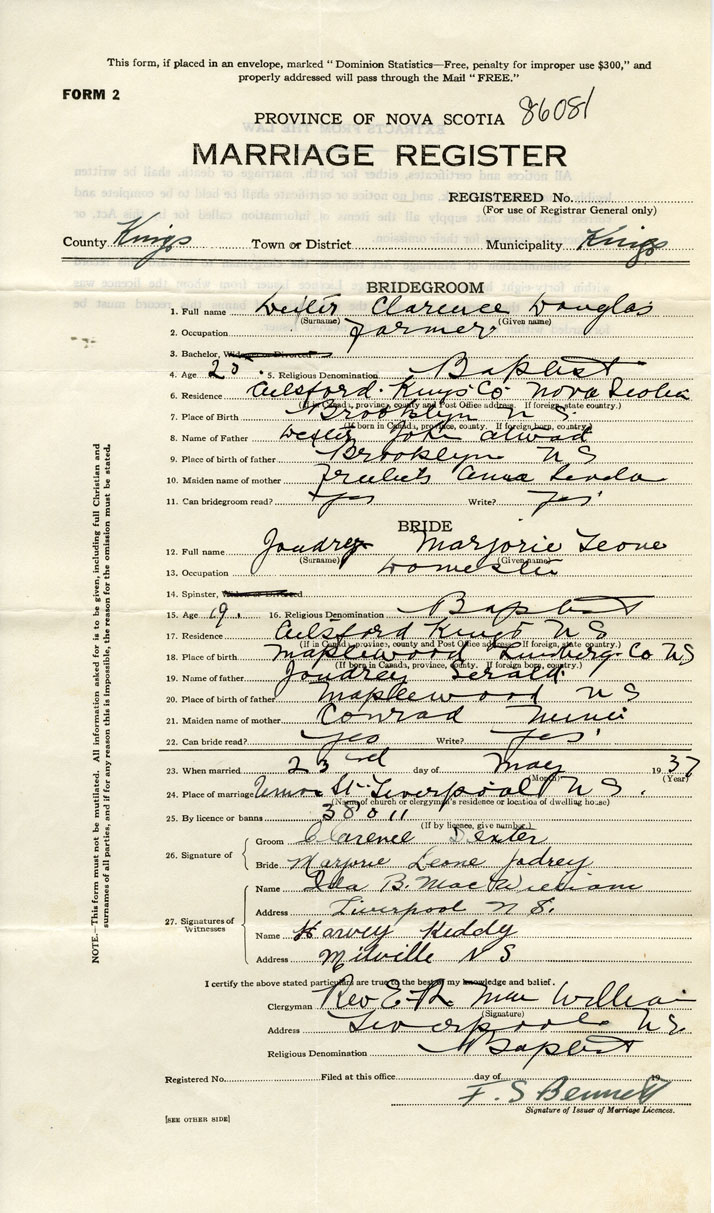 This form, if placed in an envelope, marked "Dominion Statistics—Free, penalty for improper use $300," and
properly addressed will pass through the Mail "FREE."
FORM 2
86081
PROVINCE OF NOVA SCOTIA
MARRIAGE REGISTER
REGISTERED No.
(For use of Registrar General only)
County Kings Town or District Municipality Kings
BRIDEGROOM
1. Full name Dexter Clarence Douglas
(Surname) (Given name)
2. Occupation Farmer
3. Bachelor, Widower or Divorced
4. Age 25. 5. Religious Denomination Baptist
6. Residence Aylsford. Kings Co Nova Scotia
(If in Canada, province, county and Post Office address. If foreign, state country.)
7. Place of Birth Brooklyn N. S.
(If born in Canada, province, county. If foreign born, country.)
8. Name of Father Dexter John Atwood
9. Place of birth of father Brooklyn N S
10. Maiden name of mother Anna
11. Can bridegroom read? Yes Write? Yes
BRIDE
12. Full name Joudrey Marjorie Leone
(Surname) (Given name)
13. Occupation Domestic
14. Spinster, Widow or Divorced
15. Age 19. 16. Religious Denomination Baptist
17. Residence Aylsford Kings N S
(If in Canada, province, county and Post Office address. If foreign, state country.)
18. Place of birth Maplewood Lunenburg. Co N S
(If born in Canada, province, county. If foreign born, country.)
19. Name of father Joudrey Gerald.
20. Place of birth of father Maplewood N S
21. Maiden name of mother Conrad
22. Can bride read? Yes Write? Yes
23. When married 23rd day of May 1937
(Month) (Year)
24. Place of marriage Union St. Liverpool N S.
(Name of church or clergyman's residence or location of dwelling house)
25. By licence or banns 38011
(If by licence, give number.)
26. Signature of
Groom Clarence Dexter
Bride Marjorie Leone Jodrey
27. Signatures of Witnesses
Name Ida B. MacWilliam
Address Liverpool N S.
Name Harvey Keddy
Address Milville N S
I certify the above stated particulars are true to the best of my knowledge and belief.
Clergyman Rev E. R. MacWilliam
(Signature)
Address Liverpool N S
Religious Denomination Baptist
Registered No. Filed at this office day of 19
F. S Bennett
Signature of Issuer of Marriage Licences.
[SEE OTHER SIDE]
NOTE.—This form must not be mutilated. All information asked for is to be given, including full Christian and
surnames of all parties, and if for any reason this is impossible, the reason for the omission must be stated.